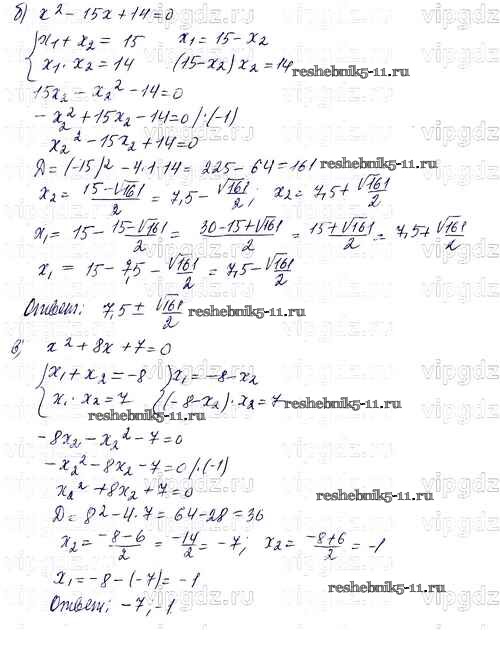 б) x² - 15x + 14 = 0
{ x₁ + x₂ = 15 x₁ = 15 - x₂
{ x₁ · x₂ = 14 (15 - x₂) x₂ = 14
reshebnik5-11.ru
15x₂ - x₂² - 14 = 0
- x₂² + 15x₂ - 14 = 0 / · (-1)
x₂² - 15x₂ + 14 = 0
D = (-15)² - 4 · 1 · 14 = 225 - 64 = 161 reshebnik5-11.ru
x₂ = (15 - √161)/2 = 7,5 - √161/2; x₂ = 7,5 + √161/2
x₁ = 15 - (15 - √161)/2 = (30 - 15 + √161)/2 = (15 + √161)/2 = 7,5 + √161/2
x₁ = 15 - 7,5 - √161/2 = 7,5 - √161/2
Ответ: 7,5 ± √161/2 reshebnik5-11.ru
в) x² + 8x + 7 = 0
{ x₁ + x₂ = -8 { x₁ = -8 - x₂
{ x₁ · x₂ = 7 { (-8 - x₂) · x₂ = 7 reshebnik5-11.ru
reshebnik5-11.ru
-8x₂ - x₂² - 7 = 0
- x₂² - 8x₂ - 7 = 0 / · (-1)
x₂² + 8x₂ + 7 = 0
reshebnik5-11.ru
D = 8² - 4 · 7 = 64 - 28 = 36
x₂ = (-8 - 6)/2 = -14/2 = -7; x₂ = (-8 + 6)/2 = -1
x₁ = -8 - (-7) = -1
reshebnik5-11.ru
Ответ: -7; -1
vipgdz.ru